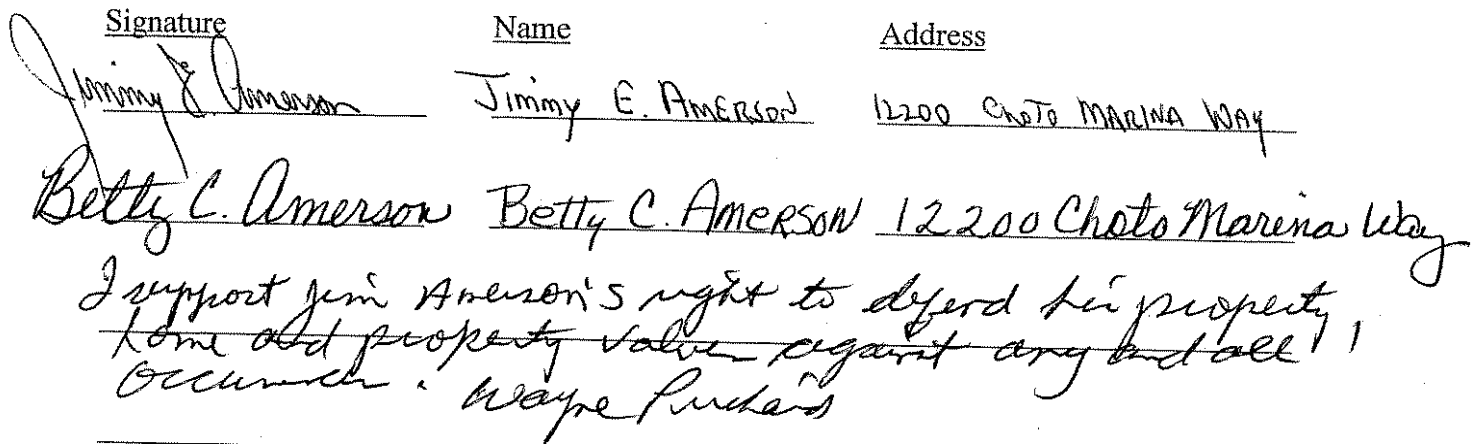 Signature Name Address
Jimmy E. Amerson Jimmy E. AMERSON 12200 CHOTO MARINA WAY
Betty C. Amerson Betty C. AMERSON 12200 Choto Marina Way
I support Jim Amerson's right to defend his property,
home and property values against any and all
occurrences. Wayne